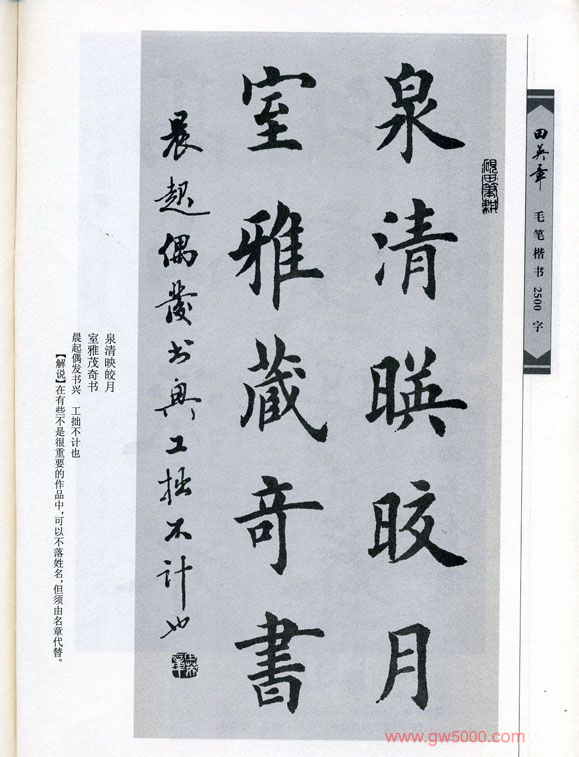 田英章
毛笔楷书2500字
硯田筆耕
泉清暎晈月
室雅藏奇書
晨起偶發书興工拙不計也
泉清映皎月
室雅茂奇书
晨起偶发书兴 工拙不计也
【解说】在有些不是很重要的作品中,可以不落姓名,但须由名章代替。
www.gw5000.com